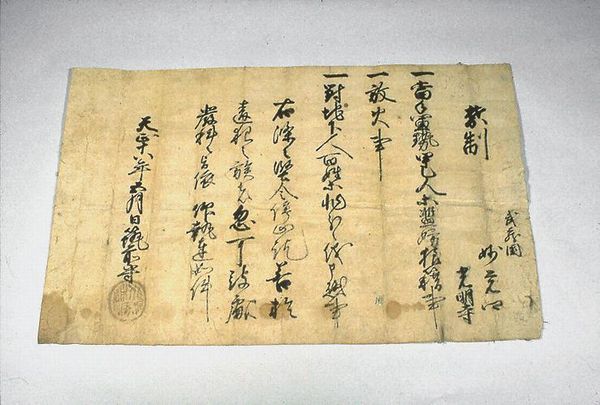 禁制
武蔵国
光明寺
一当手軍勢甲乙人等濫妨狼藉事
一放火事
一対地下人百姓等非分之儀申懸事
右条々堅令停止訖若於
違犯之族者忽可被処
厳科旨依仰執達如件
天正十八年五月日筑前守